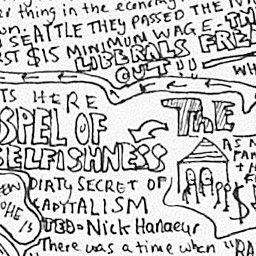 er thing in the economy
SEATTLE THEY PASSED THE
$15 MINIMUM WAGE-THE
LIBERALS FREE
OUT!!
WH
TS HERE
SPEL OF THE
SELFISHNESS
AS
DIRTY SECRET OF
CAPITALISM
HE IS
TED-Nick Hanaeur
There was a time when "RA